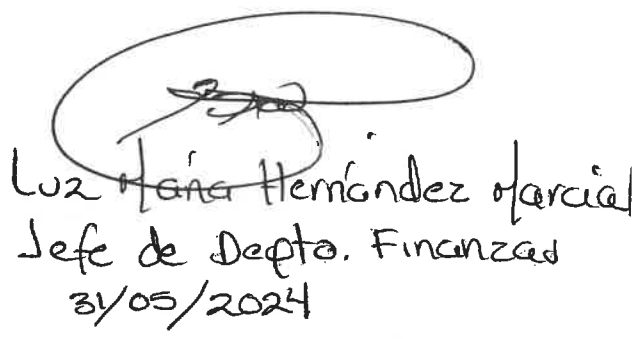 Luz María Hernández Marcial
Jefe de Depto. Finanzas
31/05/2024